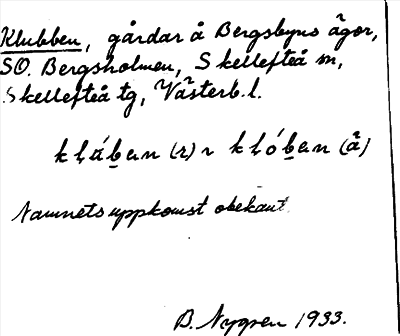 Klubben, gårdar å Bergsbyns ägor,
SO. Bergsholmen, Skellefteå sn,
Skellefteå tg, Västerb. l.
Namnets uppkomst obekant.
B. Nygren 1933.